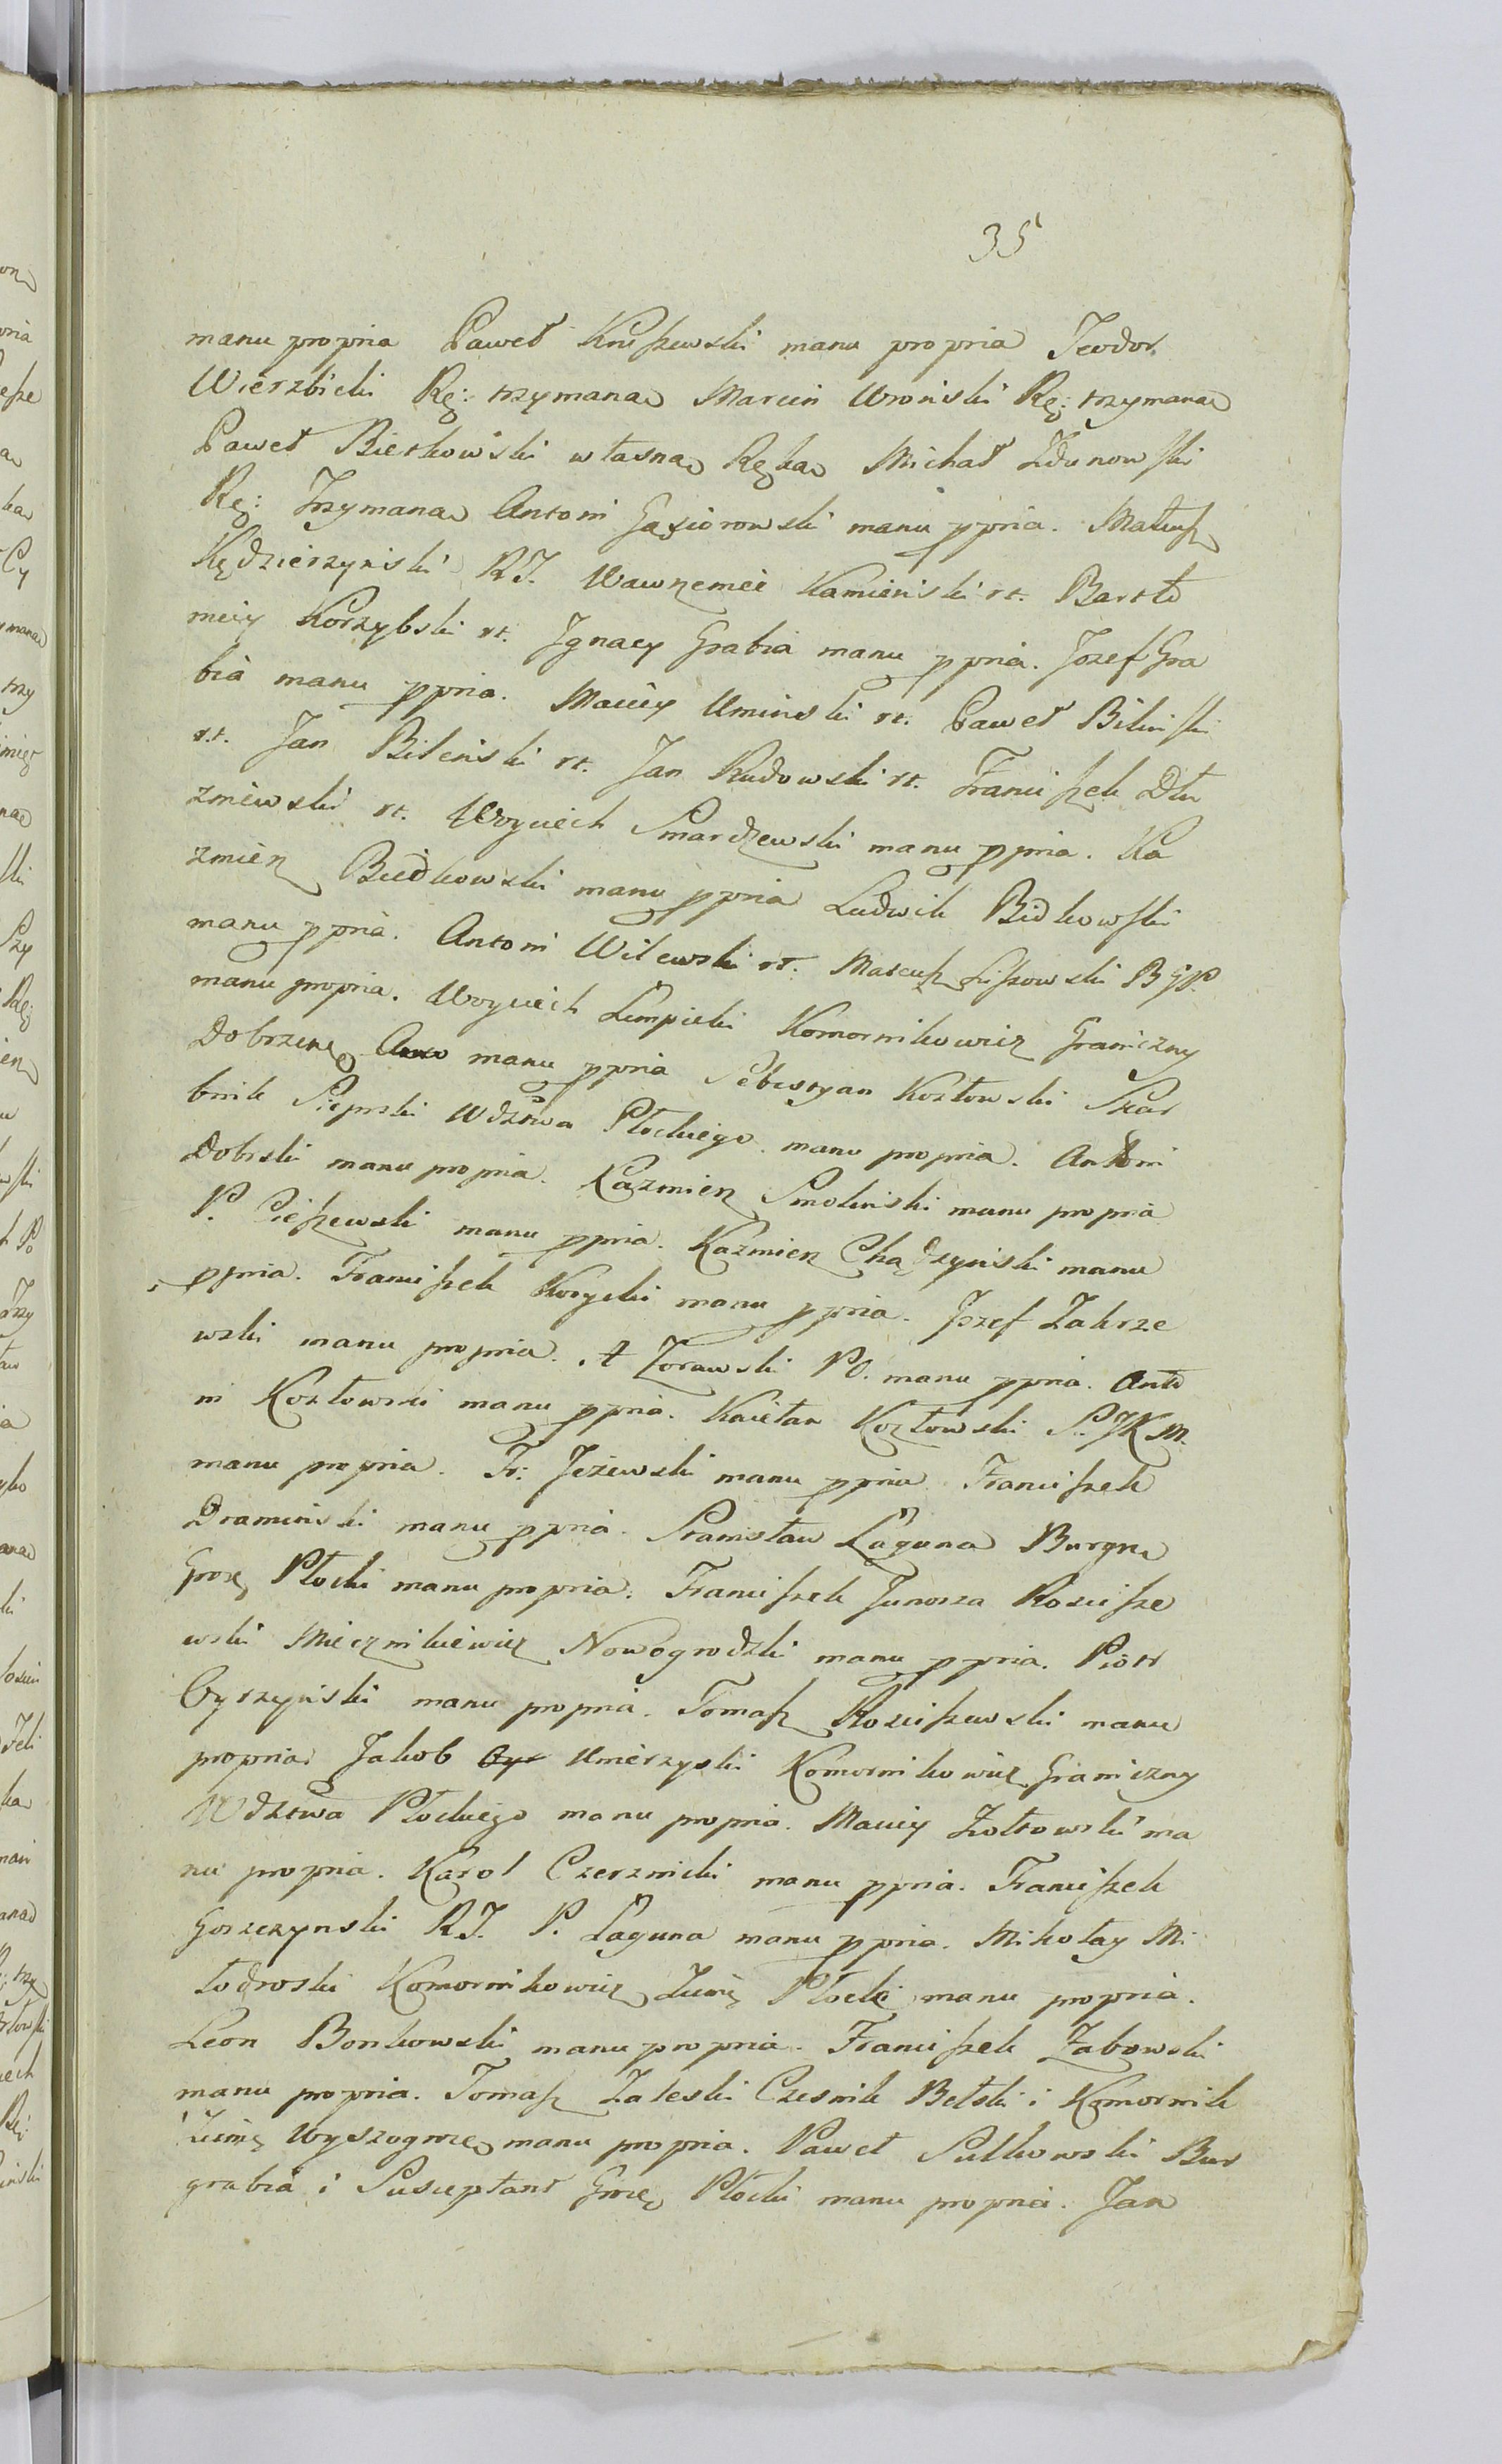 35
manu propria Paweł Kruszewski manu propria Teodor
Wierzbicki Rę: trzymaną Marcin Wroński Rę: trzymaną
Paweł Bietkowski własną Ręką Michał Zdunowski
Rę: Trzymaną Antoni Gąsiorowski manu ppria. Matusz
Kędzierzyński RT. Wawrzeniec Kamieński rt. Bartło
mieiy Korzybski rt. Ignacy Grabia manu ppria. Jozef Gra
bia manu ppria. Maciey Uminski rt. Paweł Bilinski
rt. Jan Bileński rt. Jan Rudowski rt. Franciszek Dłu
zniewski rt. Woyciech Smardzewski manu ppria. Ka
zmierz Biedkowski manu ppria Ludwik Bidkowski
manu ppria. Antoni Wilewski rt. Mateusz Liszowski BGP.
manu propria. Woyciech Lempicki Komornikowicz Graniczny
Dobrzenę manu ppria Sebestyan Kozłowski Skar
bnik Sieprski Wdztwa Płockiego manu propria. Antoni
Dobrski manu propria. Kazmierz Smoliński manu propria
P. Cieszewski manu ppria. Kazmierz Chądzyński manu
ppria. Franciszek Korycki manu ppria. Jozef Zakrze
wski manu propria. A Zorawski PO. manu ppria. Anto
ni Kozłowski manu ppria. Kaietan Kozłowski S. JKM.
manu propria. Fr: Jeżewski manu ppria Franciszek
Dramiński manu ppria. Stanisław Łaguna Burgra
Grozę Płocki manu propria. Franciszek Junosza Roscisze
wski Miecznikiewicz Nowogrodzki manu ppria. Piotr
Cyrzyński manu propria. Tomasz Rosciszewski manu
propria Jakob Umierzyski Komornikowicz Graniczny
Wdztwa Płockiego manu propria. Maciey Żołtowski ma
nu propria. Karol Czerznicki manu ppria. Franciszek
Gorzezynski RT. P. Łaguna manu ppria. Mikołay Mi
łodroski Komornikowicz Ziemę Płocki manu propria.
Leon Bonkowski manu propria. Franciszek Zabowski
manu propria. Tomasz Zaleski Czesnik Bełski i Komornik
Ziemę Wyszogrozę manu propria. Paweł Sulkowski Bur
grabia i Susceptant Grozę Płocki manu propria. Jan